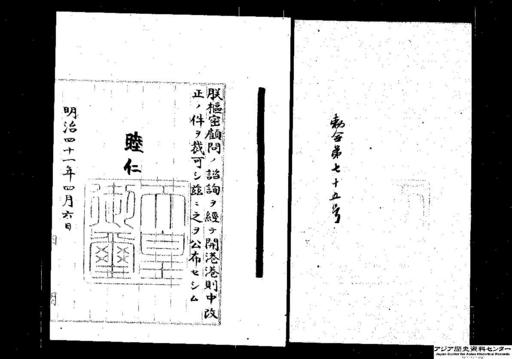 勅令第七十五号
朕樞密顧問ノ諮詢ヲ經テ開港港則中改
正ノ件ヲ裁可シ茲ニ之ヲ公布セシム
睦仁
天皇
御璽
明治四十一年四月六日
アジア歴史資料センター
Japan Center for Asian Historical Records